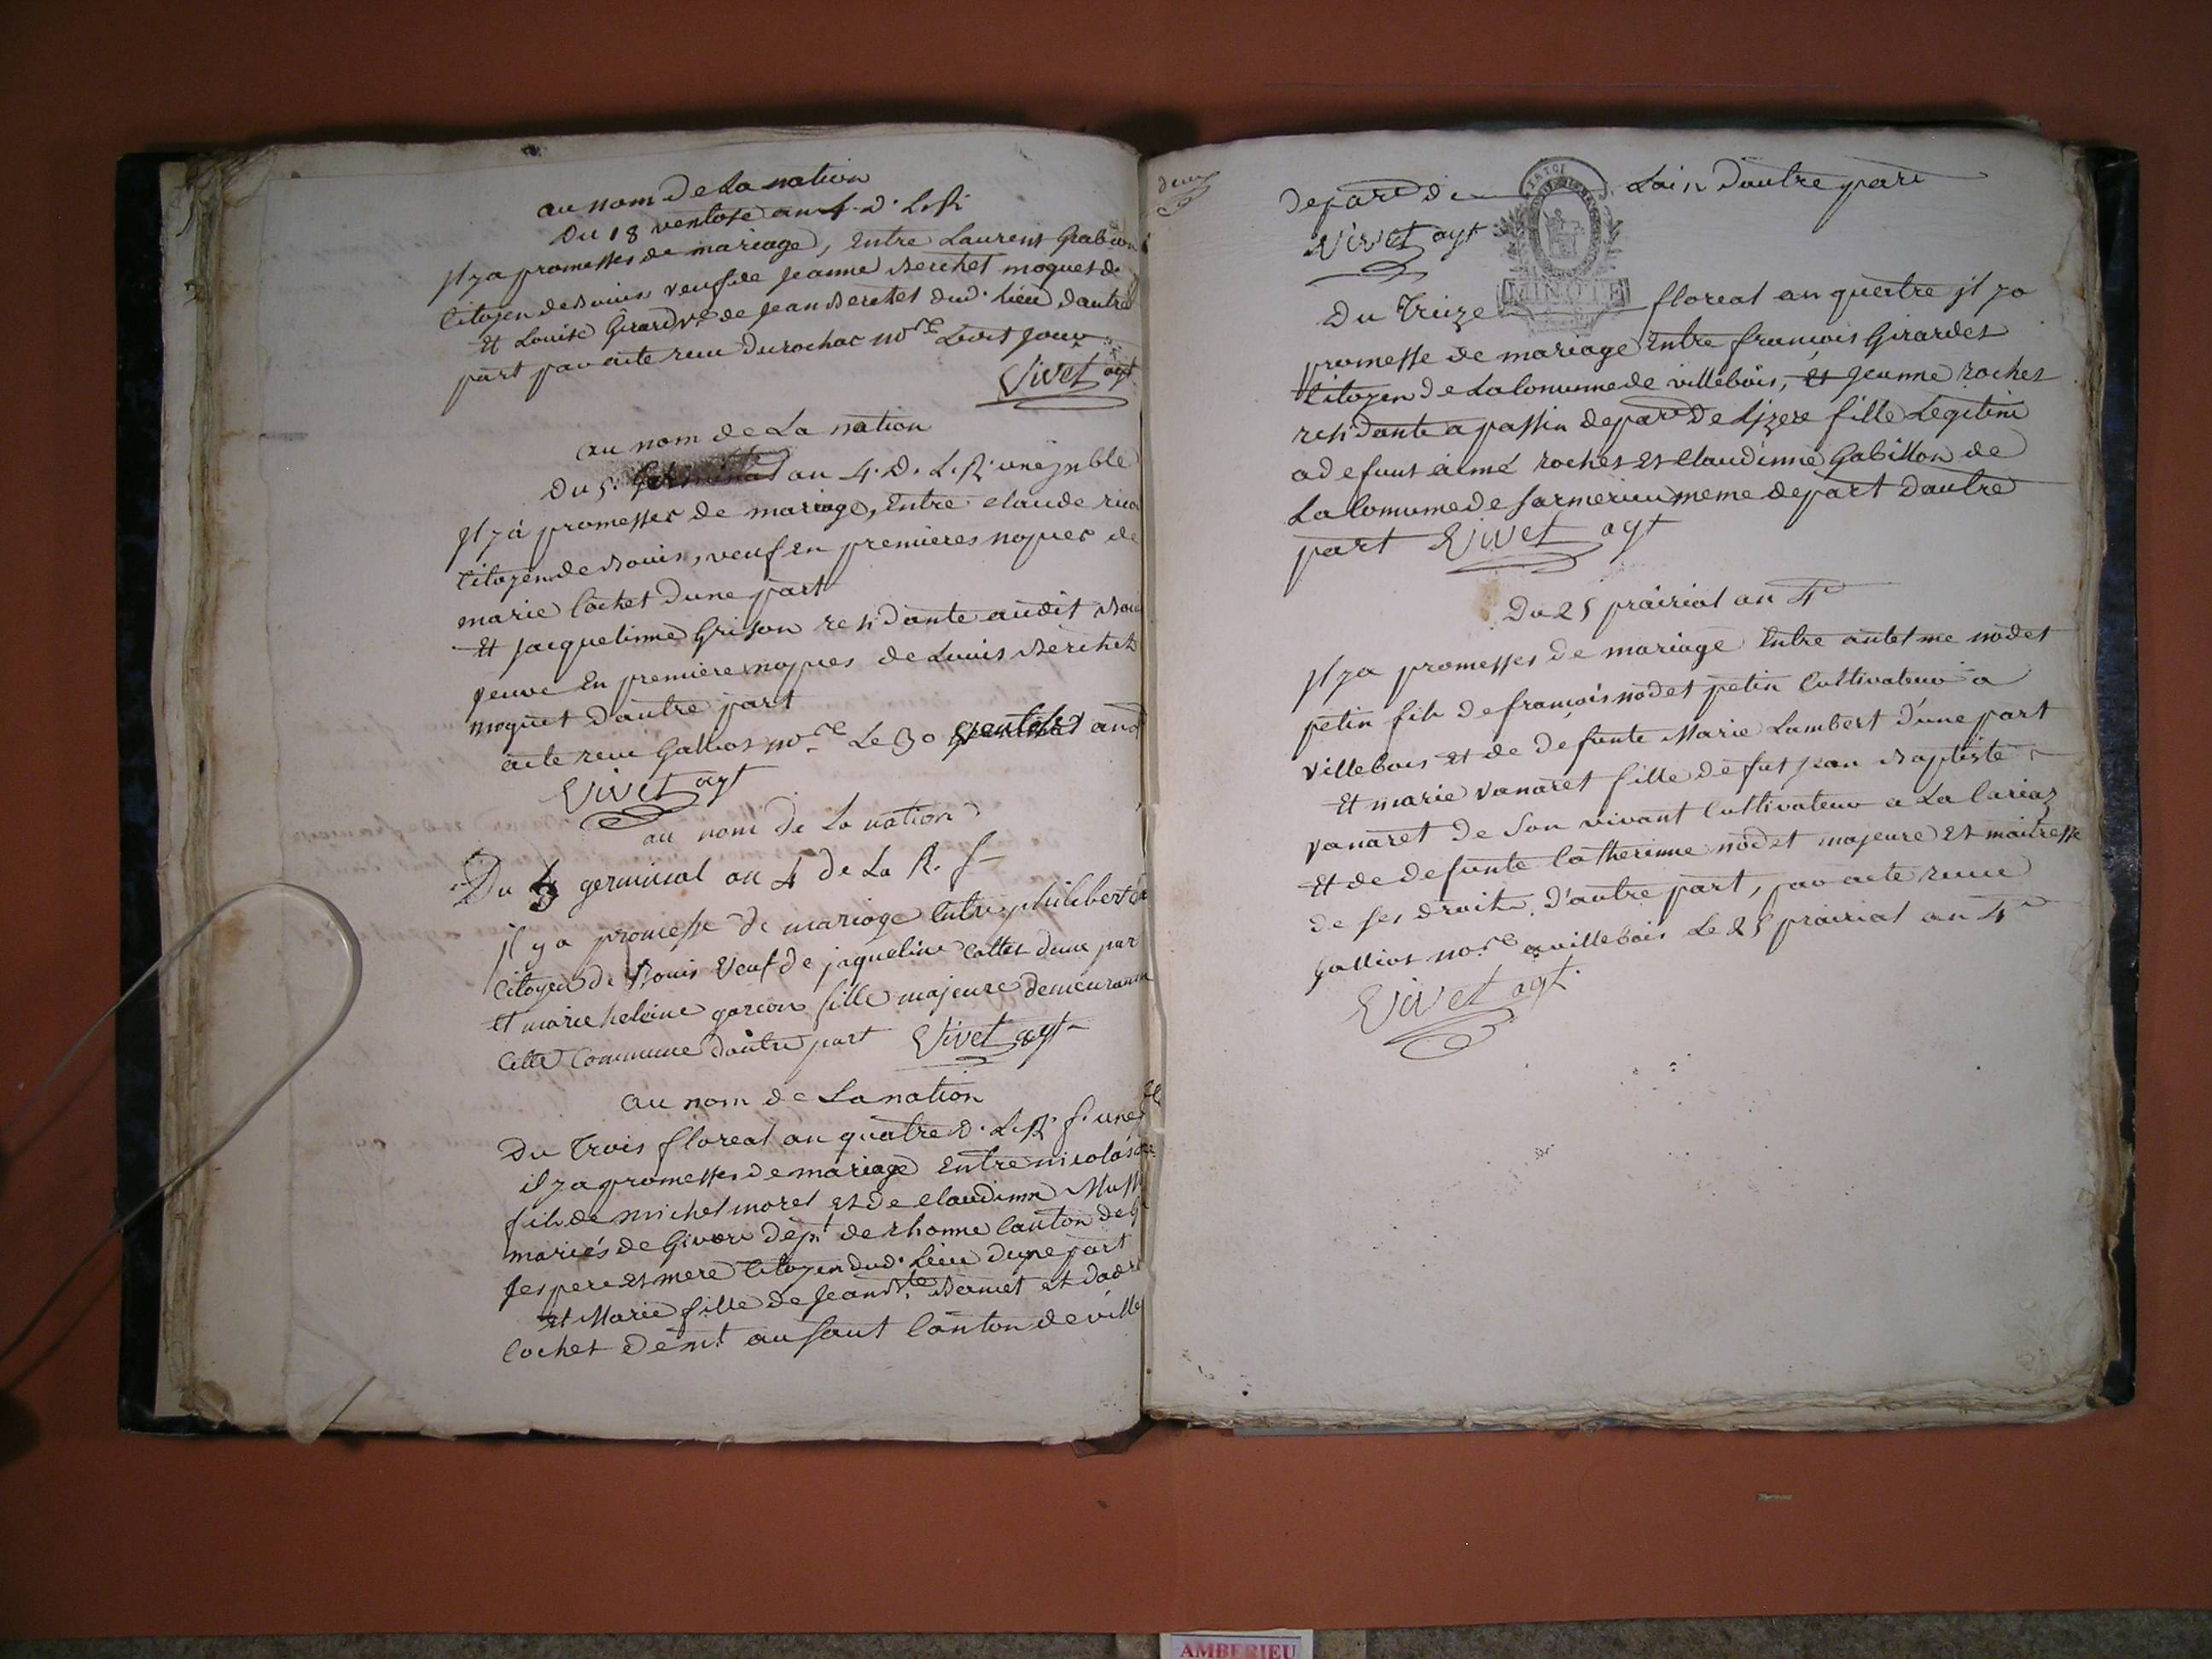 au nom de la nation
Du 18 ventose an 4. d. L. R.
Il y a promesses de mariage, entre Laurent Grabion
Citoyen de Bouis veuf de jeanne Berchet moquet de
Et Louise Girard ve. de jean Berchet dud. lieu dautre
part par acte recu Durochat nore. Le dit jour
Vivet agt
au nom de La nation
Du 5. germinal an 4. D. L. R. une jnble
Il y á promesses de mariage, Entre claude
Citoyen de Bouis, veuf en premieres nopces de
marie Cochet dune part
Et jacquelinne Grison residante audit Bou
veuve En premiere nopces de Louis Berchet
moquet dautre part
acte recu Gallios nore Le 30 ventose an 4
Vivet agt
au nom de La nation
Du 4 germinal an 4 de La R. f
il y a promesse de mariage Entre philibert
Citoyen de Bouis Veuf de jaqueline Cottet dune par
Et marie heleine garcon fille majeure demeurant
Cette Commune dautre part Vivet agt
au nom de La nation
Du Trois floreal an quatre D. L. R. f. une
il y a promesses de mariage Entre nicolas
fils de michel morel et de claudinne
mariés de Givore dept de rhonne Canton de
ses pere et mere Citoyen dud. Lieu dune part
Et Marie fille de jean Bte. Bernet et d
Cochet demt. au saut Canton de ville
depart de Lain Dautre part
Vivet agt
MINUTE
Du Treize floreal an quatre jl ya
promesse de mariage Entre francois Girardet
Citoyen de La Comunne de villebois, et jeanne rochet
residante a passin depart De Lizere fille Legitime
a defunt aimé rochet et Claudinne Gabillon de
La Comune de sarmerieu meme depart dautre
part Vivet agt
Du 25 prairial an 4e
Il y a promesses de mariage Entre antelme nodet
petin fils de francois nodet petin Cultivateur a
villebois et de defunte Marie Lambert d'une part
Et marie vanaret fille defut jean Baptiste
vanaret de son vivant Cultivateur a La Cariaz
Et de defunte Catherinne nodet majeure et maitresse
de ses droits, d'autre part, par acte recue
Gallios nore a villebois Le 25 prairial an 4e
Vivet agt.
AMBERIEU